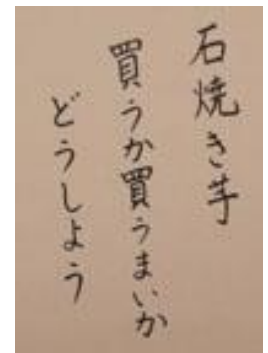 石焼き芋
買うか買うまいか
どうしよう